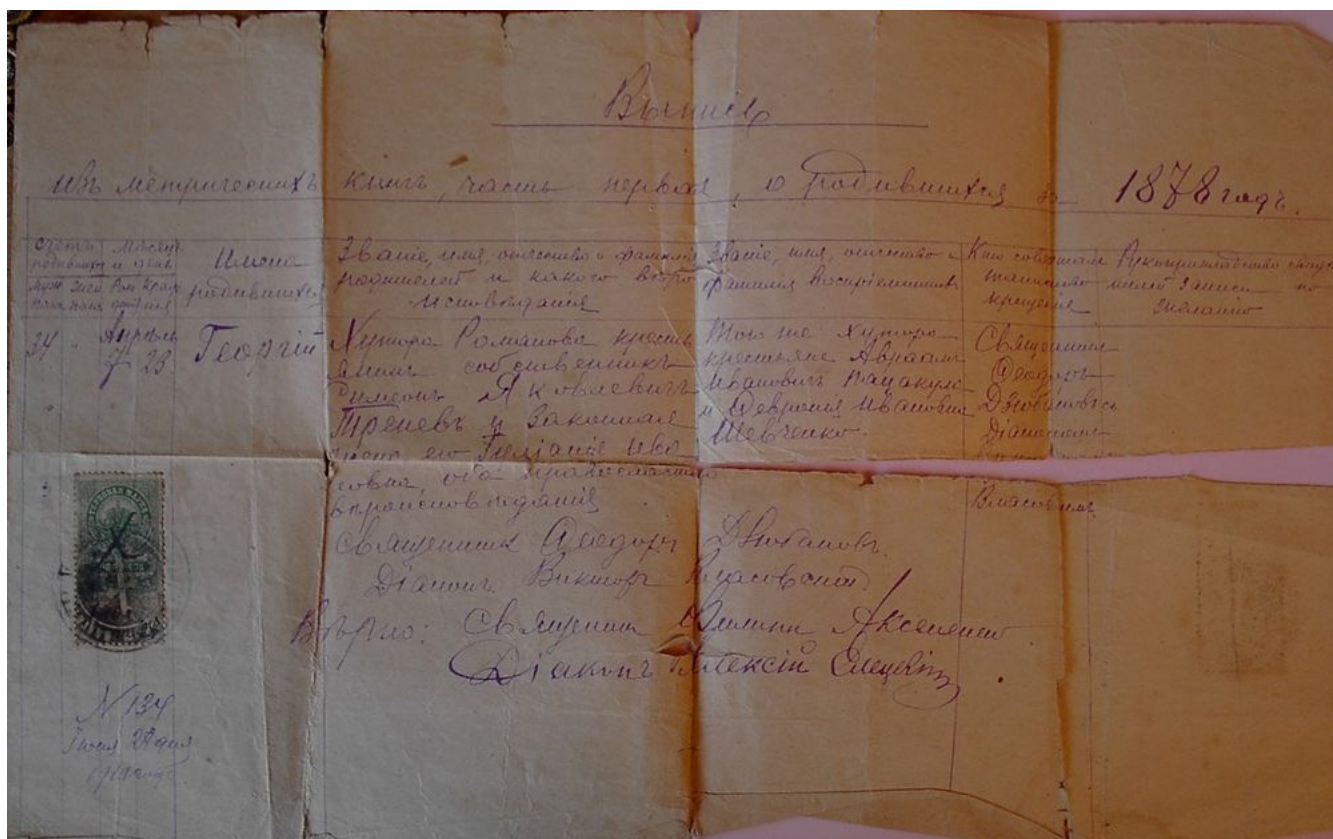 Выпись
изъ метрическихъ книгъ, часть первая, о родившихся за 1878 годъ.
Счетъ родившихся
муж. пола жен. пола
Мѣсяцъ и день
Рож денія Кре щенія
Имена родившихся
Званіе, имя, отчество и фамилія
родителей и какого вѣро
исповѣданія
Званіе, имя, отчество и
фамилія воспріемниковъ
Кто совершалъ
таинство
крещенія
Рукоприкладство свидѣ
телей записи по
желанію
34 "
Апрѣль
7 23
Георгій
Хутора Романова кресть
янинъ собственникъ
Симеонъ Яковлевичъ
Треневъ и законная
жена его Ива
овна, оба православнаго
вѣроисповѣданія
Того же хутора
крестьяне Авраамъ
Ивановичъ
и Февронія Ивановна
Шевченко.
Священникъ
Ѳеодоръ
Дзюбановъ съ
діакономъ
Священникъ Ѳеодоръ Дзюбановъ.
Діаконъ Викторъ Власовскій
Вѣрно: Священникъ Аксененко
Діаконъ Алексій
N 134